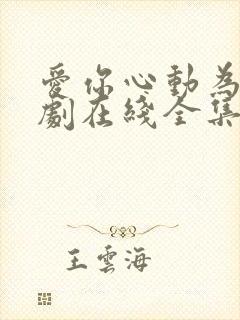 愛你心動為
劇在綫全集
王雲海